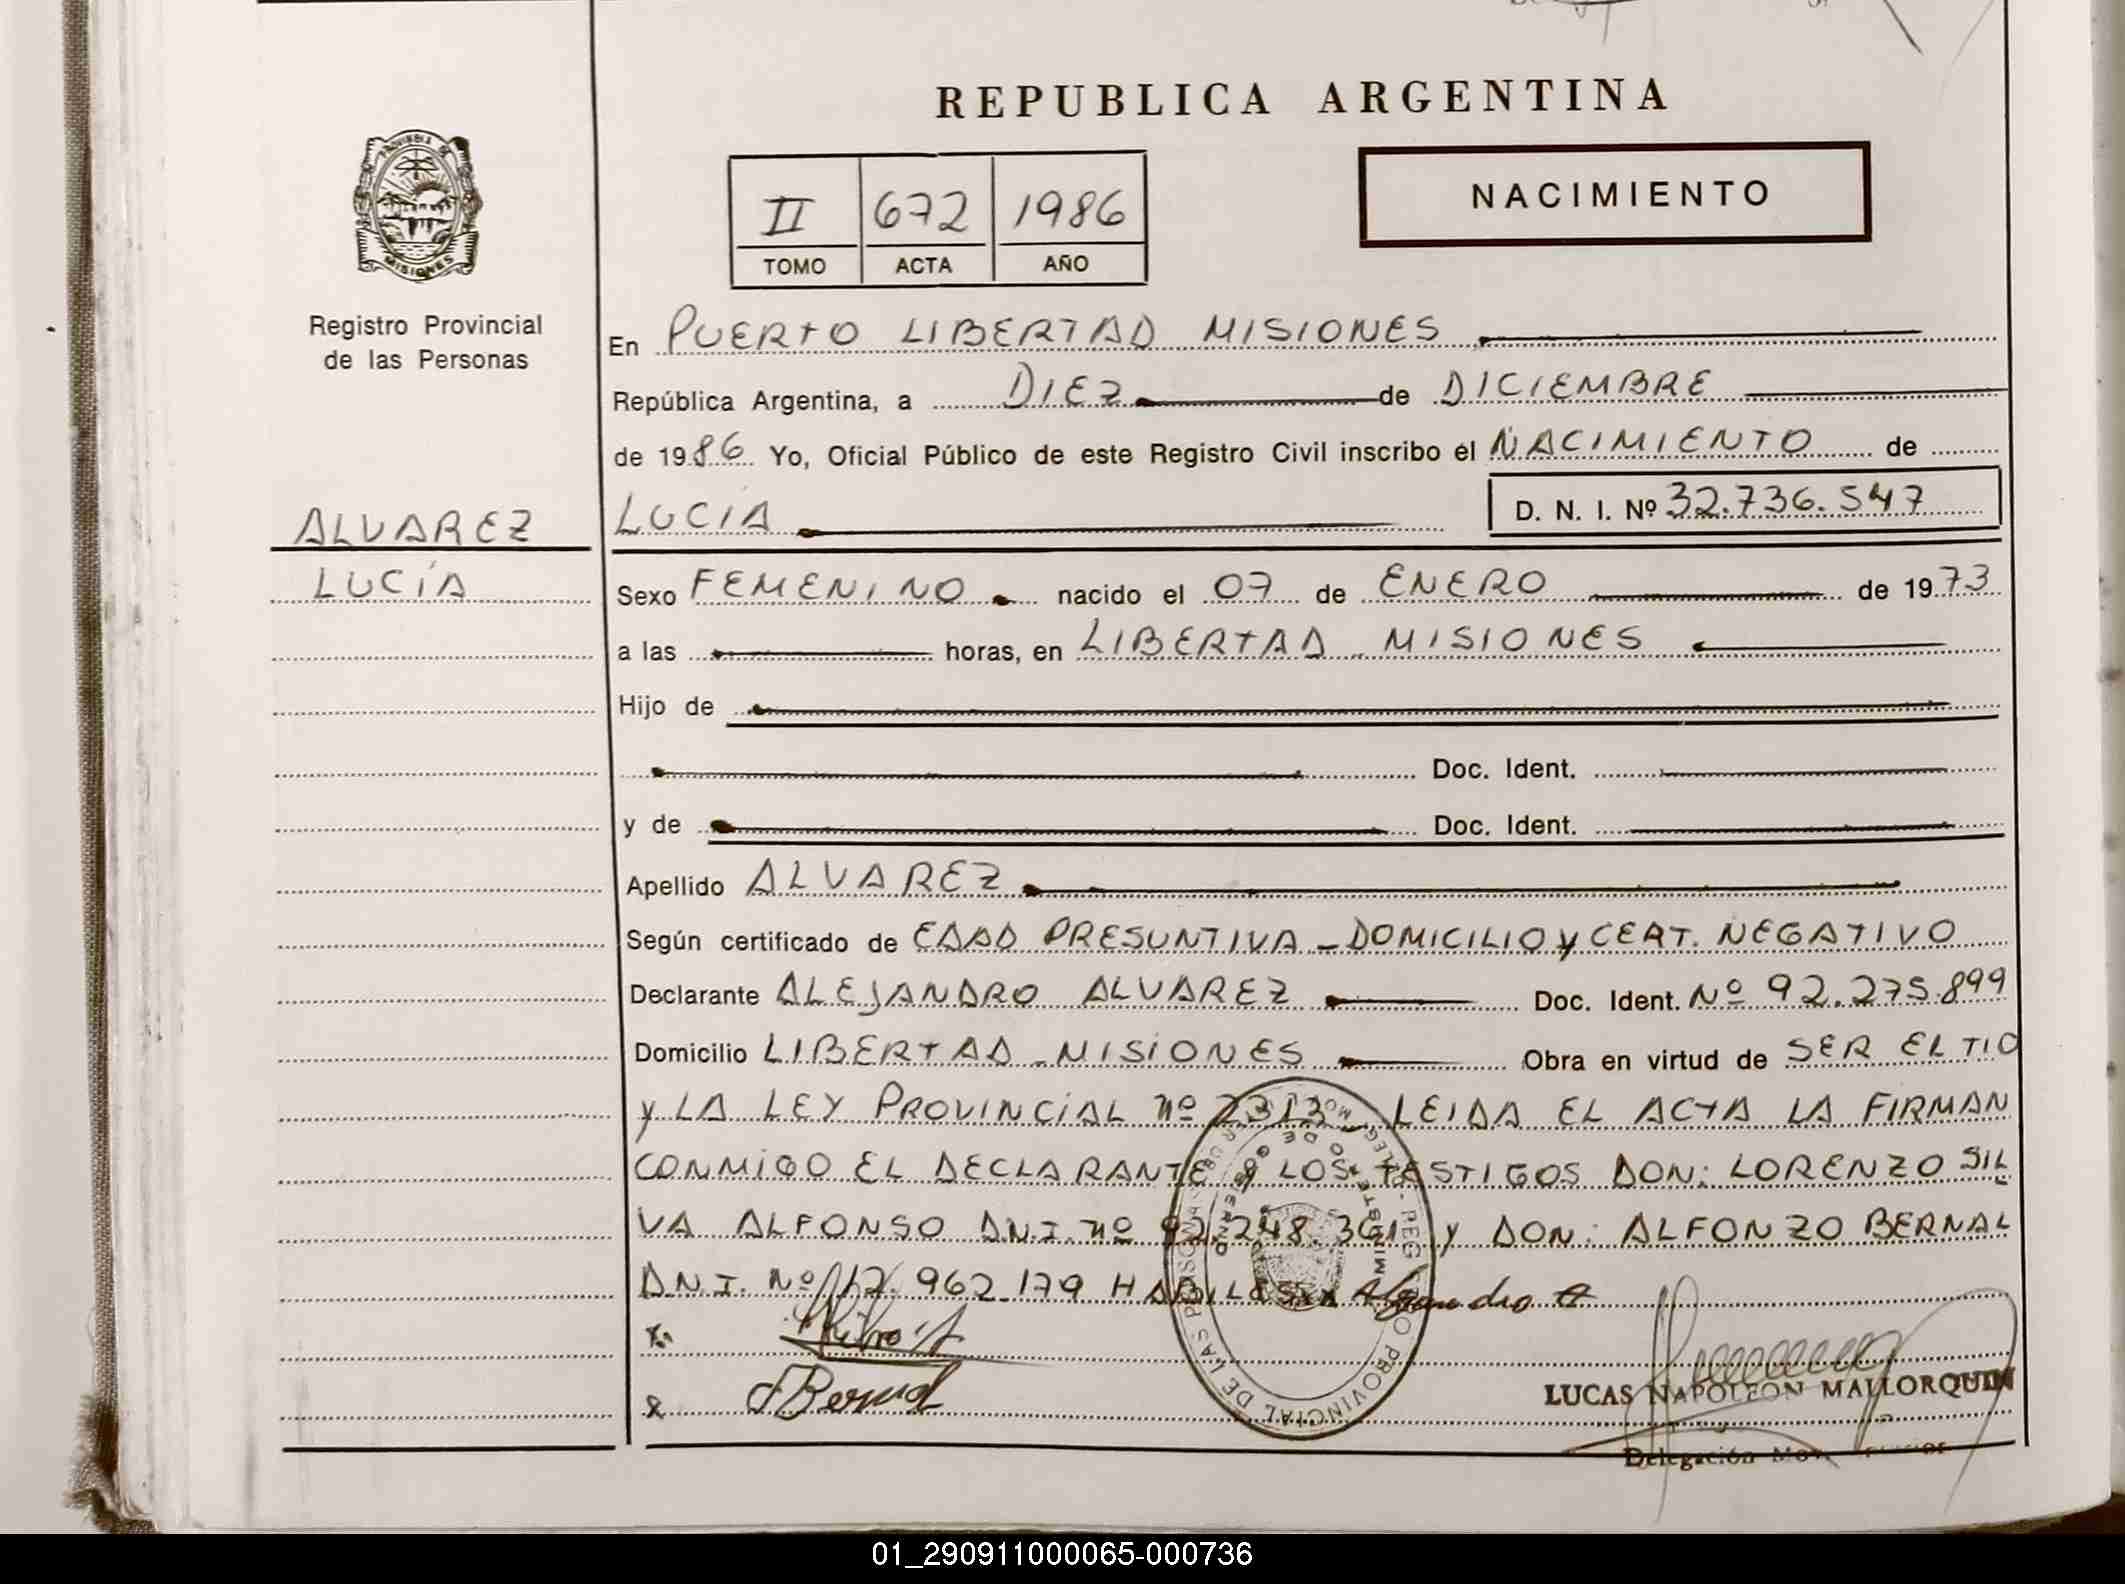 REPUBLICA ARGENTINA
PROVINCIA DE
MISIONES
II 672 1986
TOMO ACTA AÑO
NACIMIENTO
Registro Provincial
de las Personas
En PUERTO LIBERTAD MISIONES
República Argentina, a DIEZ de DICIEMBRE
de 1986 Yo, Oficial Público de este Registro Civil inscribo el NACIMIENTO de
ALVAREZ
LUCIA D. N. I. Nº 32.736.547
LUCÍA
Sexo FEMENINO nacido el 07 de ENERO de 1973
a las horas, en LIBERTAD - MISIONES
Hijo de
Doc. Ident.
y de Doc. Ident.
Apellido ALVAREZ
Según certificado de EDAD PRESUNTIVA - DOMICILIO y CERT. NEGATIVO
Declarante ALEJANDRO ALVAREZ Doc. Ident. Nº 92.275.899
Domicilio LIBERTAD - MISIONES Obra en virtud de SER EL TIO
y LA LEY PROVINCIAL Nº 2313 - LEIDA EL ACTA LA FIRMAN
CONMIGO EL DECLARANTE y LOS TESTIGOS DON: LORENZO SIL
VA ALFONSO D.N.I. Nº 92.248.361 y DON: ALFONZO BERNAL
D.N.I. Nº 17.962.179 HABILES x Alejandro A
x
x Bernal
REGISTRO PROVINCIAL DE LAS PERSONAS
MINISTERIO DE GOBIERNO
LUCAS NAPOLEON MALLORQUIN
Delegación
01_290911000065-000736